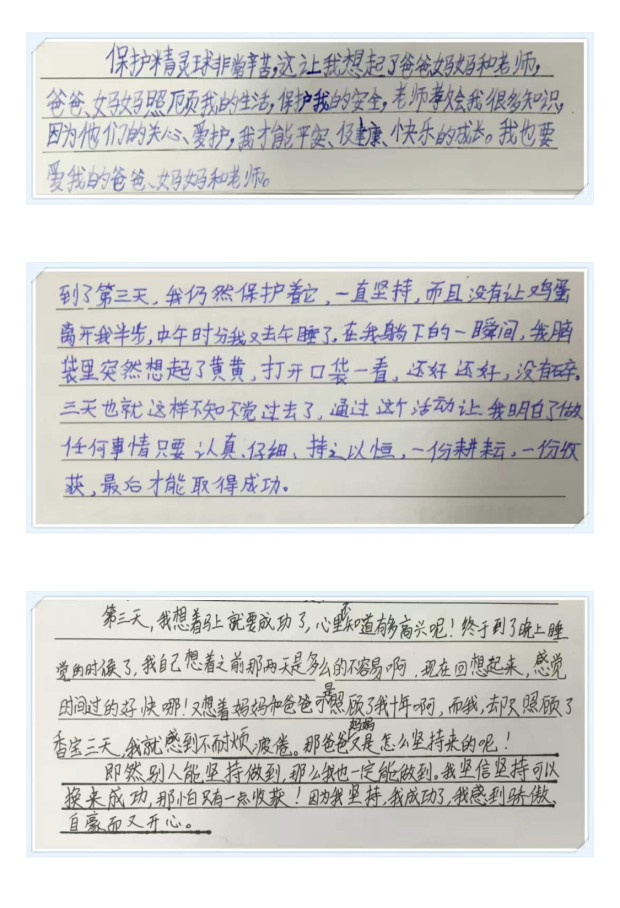 保护精灵球非常辛苦,这让我想起了爸爸妈妈和老师,
爸爸、妈妈照顾我的生活,保护我的安全,老师教会我很多知识,
因为他们的关心、爱护,我才能平安、健康、快乐的成长。我也要
爱我的爸爸、妈妈和老师。
到了第三天,我仍然保护着它,一直坚持,而且没有让鸡蛋
离开我半步,中午时分我又去午睡了,在我躺下的一瞬间,我脑
袋里突然想起了黄黄,打开口袋一看,还好还好,没有碎。
三天也就这样不知不觉过去了,通过这个活动让我明白了做
任何事情只要认真、仔细、持之以恒,一份耕耘,一份收
获,最后才能取得成功。
第三天,我想着马上就要成功了,心里不知道有多高兴呢!终于到了晚上睡
觉的时候了,我自己想着之前那两天是多么的不容易啊,现在回想起来,感觉
时间过的好快哪!又想着妈妈和爸爸是照顾了我十年啊,而我,却只照顾了
香宝三天,我就感到不耐烦,疲倦。那爸爸妈妈又是怎么坚持来的呢!
即然别人能坚持做到,那么我也一定能做到。我坚信坚持可以
换来成功,那怕只有一点收获!因为我坚持,我成功了,我感到骄傲、
自豪而又开心。